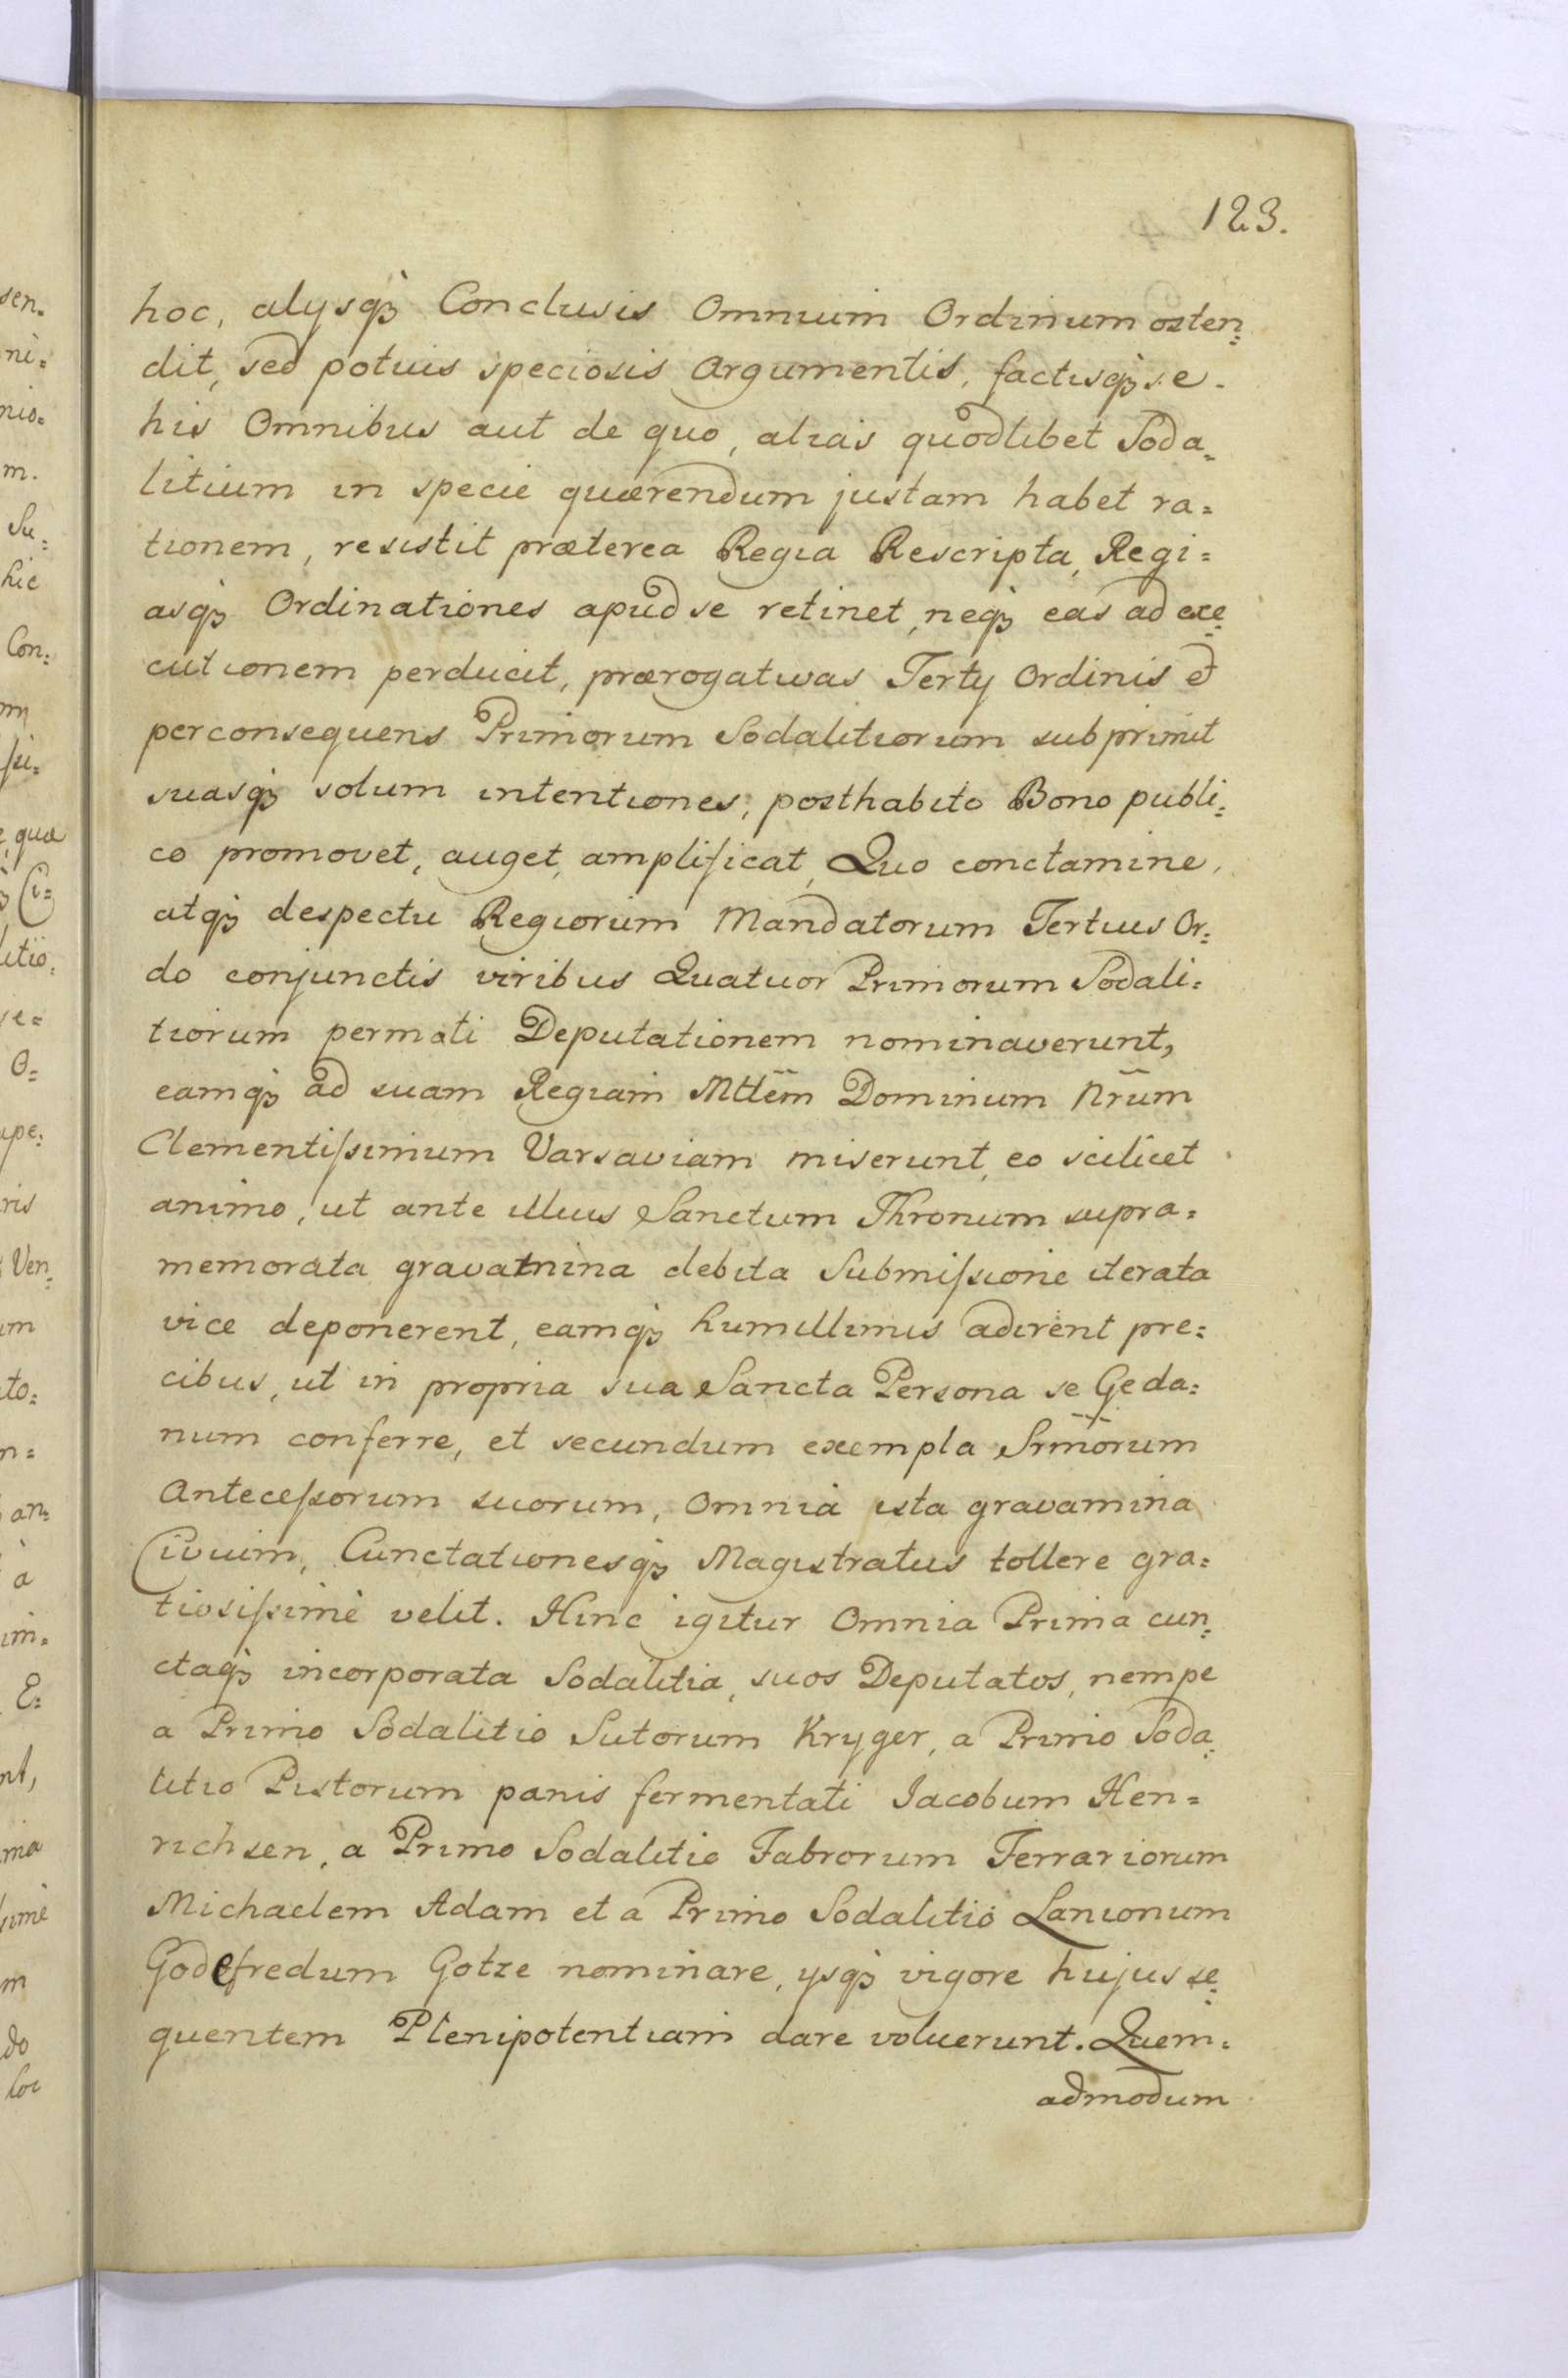 123.
hoc, alysq; Conclusis Omnium Ordinum osten=
dit, sed potius speciosis Argumentis, factisq; se
his Omnibus aut de quo, alias quodlibet Soda=
litium in specie quærendum justam habet ra=
tionem, resistit præterea Regia Rescripta, Regi=
asq; Ordinationes apud se retinet, neq; eas ad exe=
cutionem perducit, prærogativas Terty Ordinis et
perconsequens Primorum Sodalitiorum subprimit
suasq; solum intentiones, posthabito Bono publi=
co promovet, auget, amplificat, Quo conctamine,
atq; despectu Regiorum Mandatorum Tertius Or=
do conjunctis viribus Quatuor Primorum Sodali=
tiorum permoti Deputationem nominaverunt,
eamq; ad suam Regiam Mttẽm Dominum Nrũm
Clementiſsimum Varsaviam miserunt, eo scilicet
animo, ut ante illius Sanctum Thronum supra=
memorata gravamina debita Submiſsione iterata
vice deponerent, eamq; humillimis adirent pre=
cibus, ut in propria sua Sancta Persona se Geda=
num conferre, et secundum exempla Srm̃orum
Anteceſsorum suorum, Omnia ista gravamina
Civium, Cunctationesq; Magistratus tollere gra=
tiosiſsimè velit. Hinc igitur Omnia Prima cun=
ctaq; incorporata Sodalitia, suos Deputatos, nempe
a Primo Sodalitio Sutorum Kryger, a Primo Soda=
litio Pistorum panis fermentati Jacobum Hen=
richsen, a Primo Sodalitio Fabrorum Ferrariorum
Michaelem Adam et a Primo Sodalitio Lanionum
Godefredum Gotze nominare, ysq; vigore hujus se=
quentem Plenipotentiam dare voluerunt. Quem=
admodum